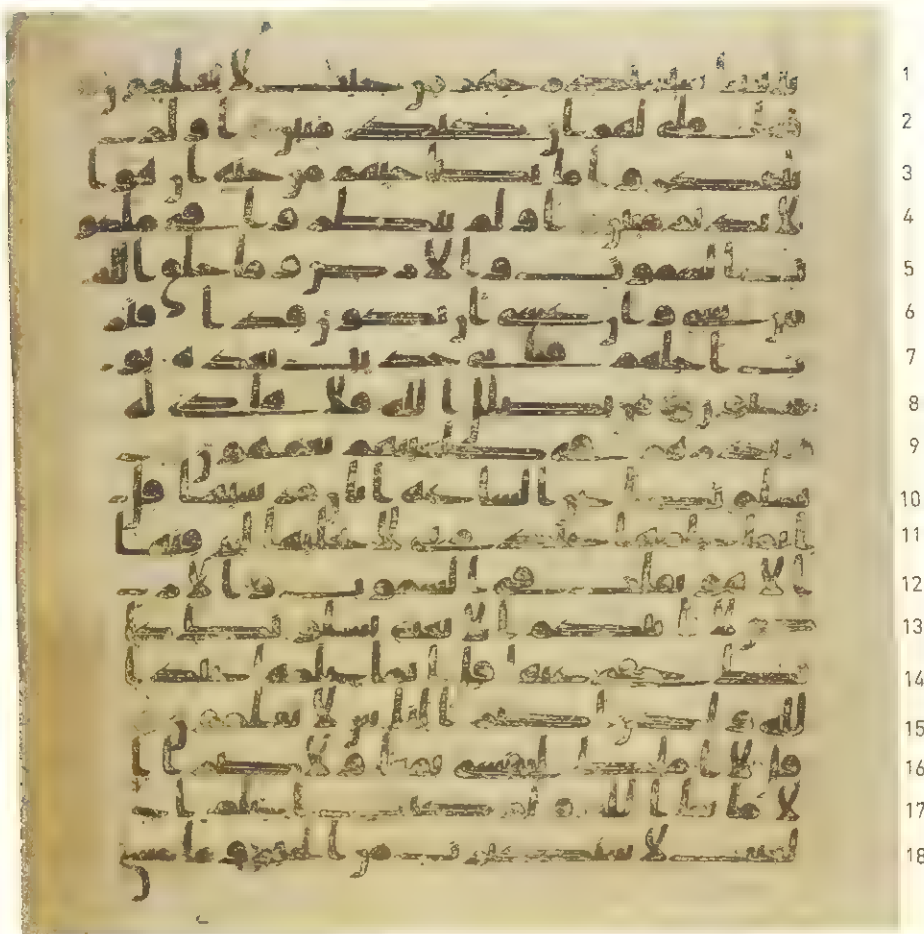 يتنا سنستدرجهم من حيث لا يعلمون 1
واملى لهم ان كيدى متين اولم 2
يتفكروا ما بصحبهم من جنة ان هو ا 3
لا نذير مبين اولم ينظروا فى ملكو 4
ت السموت والارض وما خلق الله 5
من شى وان عسى ان يكون قد اقتر 6
ب اجلهم فباى حديث بعده يو 7
منون من يضلل الله فلا هادى له 8
ويذرهم فى طغينهم يعمهون 9
يسلونك عن الساعة ايان مرسيها قل 10
انما علمها عند ربى لا يجليها لوقتها 11
الا هو ثقلت فى السموت والار 12
ض لا تاتيكم الا بغتة يسلونك كا 13
نك حفى عنها قل انما علمها عند ا 14
لله ولكن اكثر الناس لا يعلمون 15
قل لا املك لنفسى نفعا ولا ضرا ا 16
لا ما شا الله ولو كنت اعلم ا 17
لغيب لاستكثرت من الخير وما مسنى 18